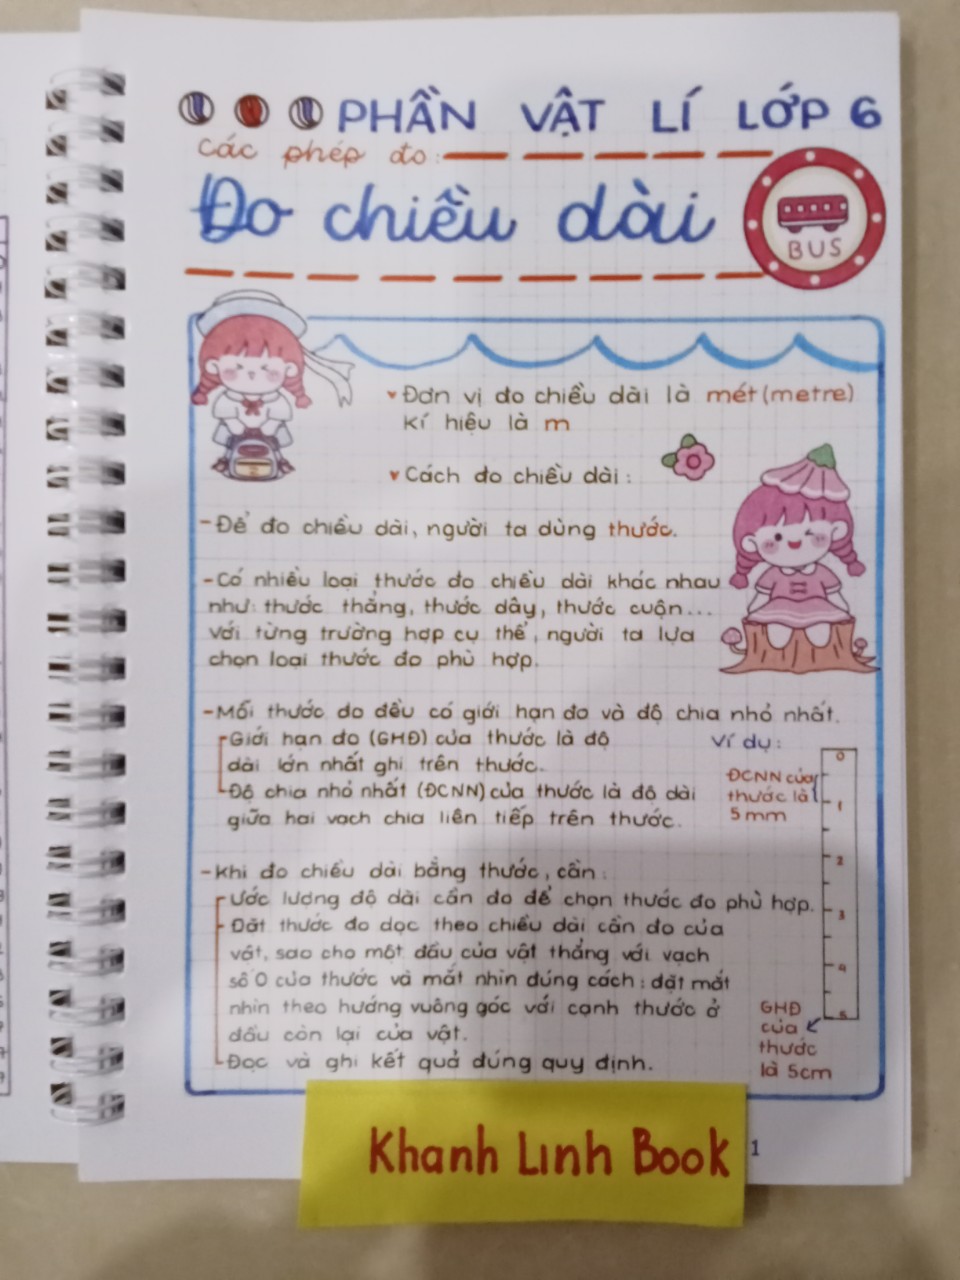 PHẦN VẬT LÍ LỚP 6
Các phép đo:
Đo chiều dài
BUS
Đơn vị đo chiều dài là mét (metre)
Kí hiệu là m
Cách đo chiều dài:
- Để đo chiều dài, người ta dùng thước.
- Có nhiều loại thước đo chiều dài khác nhau
như: thước thẳng, thước dây, thước cuộn...
Với từng trường hợp cụ thể, người ta lựa
chọn loại thước đo phù hợp.
- Mỗi thước đo đều có giới hạn đo và độ chia nhỏ nhất.
Giới hạn đo (GHĐ) của thước là độ
dài lớn nhất ghi trên thước.
Độ chia nhỏ nhất (ĐCNN) của thước là độ dài
giữa hai vạch chia liên tiếp trên thước.
Ví dụ:
ĐCNN của
thước là
5 mm
0
1
2
3
4
5
- Khi đo chiều dài bằng thước, cần:
Ước lượng độ dài cần đo để chọn thước đo phù hợp.
Đặt thước đo dọc theo chiều dài cần đo của
vật, sao cho một đầu của vật thẳng với vạch
số 0 của thước và mắt nhìn đúng cách: đặt mắt
nhìn theo hướng vuông góc với cạnh thước ở
đầu còn lại của vật.
Đọc và ghi kết quả đúng quy định.
GHĐ
của
thước
là 5cm
Khanh Linh Book
1